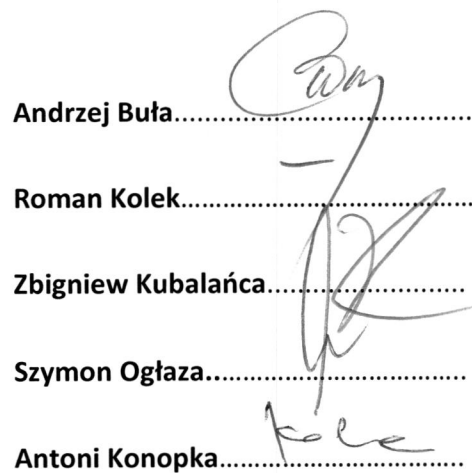 Andrzej Buła..............................................
Roman Kolek.............................................
Zbigniew Kubalańca..............................
Szymon Ogłaza.......................................
Antoni Konopka.....................................